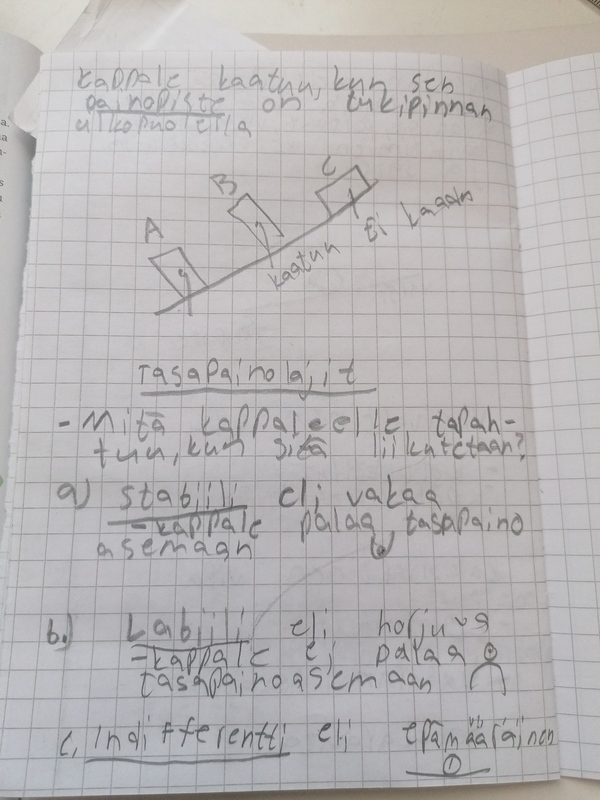 kappale kaatuu, kun sen
painopiste on tukipinnan
ulkopuolella
A
B
C
kaatuu
Ei kaadu
Tasapainolajit
- Mitä kappaleelle tapah-
tuu, kun sitä liikutetaan?
a) stabiili eli vakaa
- kappale palaa tasapaino
asemaan
b.) Labiili eli horjuva
- kappale ei palaa
tasapainoasemaan
c, indifferentti eli epämääräinen